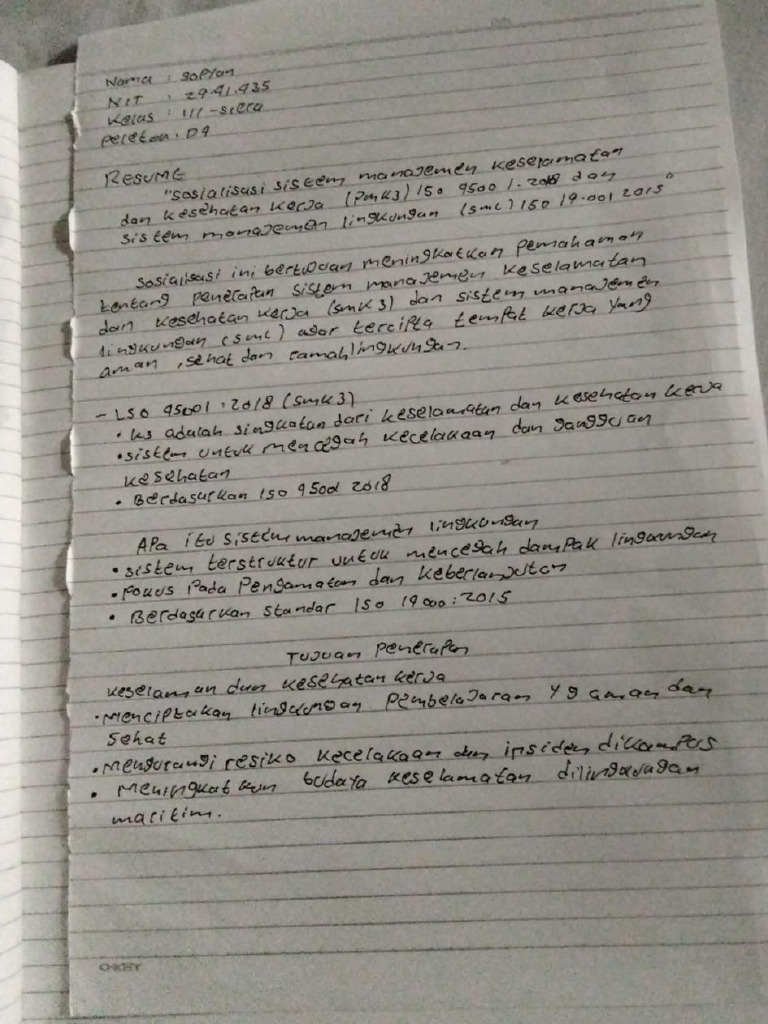 Nama : Sopyan
NIT : 29.41.435
Kelas : III - Siera
Peleton . D4
RESUME
"Sosialisasi sistem manajemen keselamatan
dan kesehatan kerja (PMK3) ISO 9500 1.2018 dan
sistem manajemen lingkungan (SML) ISO 19.001 2015"
Sosialisasi ini bertujuan meningkatkan pemahaman
tentang penerapan sistem manajemen keselamatan
dan kesehatan kerja (SMK3) dan sistem manajemen
lingkungan (SML) agar tercipta tempat kerja yang
aman , sehat dan ramah lingkungan.
- ISO 95001 : 2018 (SMK3)
• KS adalah singkatan dari keselamatan dan kesehatan kerja
• sistem untuk mencegah kecelakaan dan gangguan
kesehatan
• Berdasarkan ISO 9500 2018
APa itu sistem manajemen lingkungan
• sistem terstruktur untuk mencegah dampak lingkungan
• Fokus Pada Pengamatan dan keberlanjutan
• Berdasarkan standar ISO 19000 : 2015
TUJUAN Penerapan
Keselaman dan kesehatan kerja
• Menciptakan lingkungan Pembelajaran yg aman dan
sehat
• Mengurangi resiko kecelakaan dan insiden dikampus
• Meningkatkan budaya keselamatan dilingkungan
maritim.